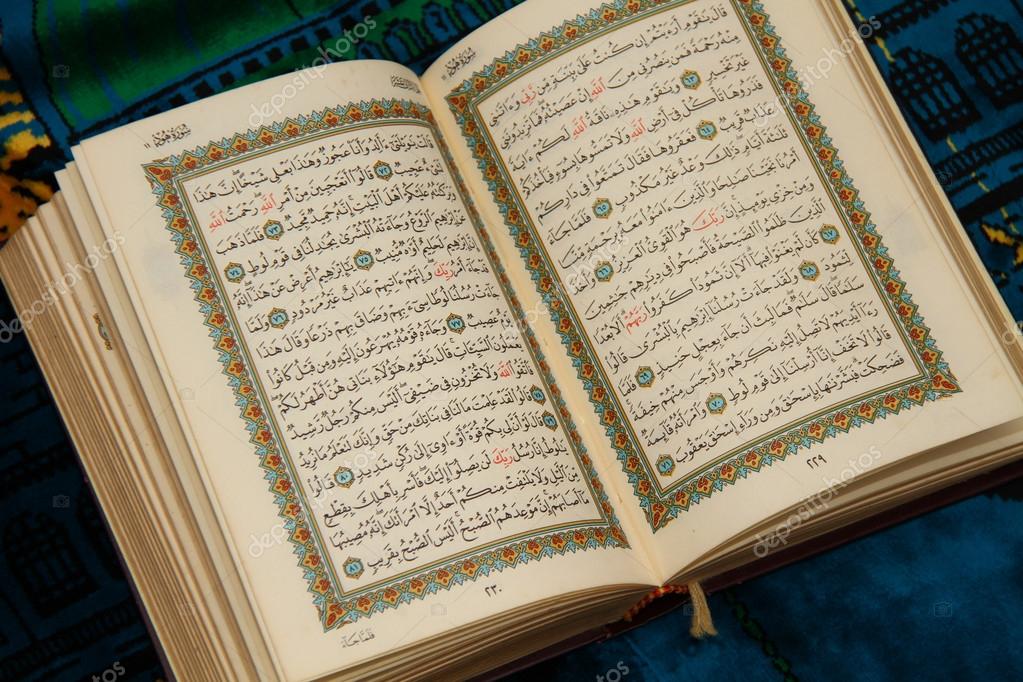 سُورَةُ هُودٍ
قَالَ يَٰقَوْمِ أَرَءَيْتُمْ إِن كُنتُ عَلَىٰ بَيِّنَةٍ مِّن رَّبِّى وَءَاتَىٰنِى
مِنْهُ رَحْمَةً فَمَن يَنصُرُنِى مِنَ ٱللَّهِ إِنْ عَصَيْتُهُۥ فَمَا تَزِيدُونَنِى
غَيْرَ تَخْسِيرٍ ٦٣ وَيَٰقَوْمِ هَٰذِهِۦ نَاقَةُ ٱللَّهِ لَكُمْ ءَايَةً
فَذَرُوهَا تَأْكُلْ فِىٓ أَرْضِ ٱللَّهِ وَلَا تَمَسُّوهَا بِسُوٓءٍ فَيَأْخُذَكُمْ
عَذَابٌ قَرِيبٌ ٦٤ فَعَقَرُوهَا فَقَالَ تَمَتَّعُوا۟ فِى دَارِكُمْ
ثَلَٰثَةَ أَيَّامٍ ذَٰلِكَ وَعْدٌ غَيْرُ مَكْذُوبٍ ٦٥ فَلَمَّا جَآءَ
أَمْرُنَا نَجَّيْنَا صَٰلِحًا وَٱلَّذِينَ ءَامَنُوا۟ مَعَهُۥ بِرَحْمَةٍ مِّنَّا
وَمِنْ خِزْىِ يَوْمِئِذٍ إِنَّ رَبَّكَ هُوَ ٱلْقَوِىُّ ٱلْعَزِيزُ ٦٦ وَأَخَذَ
ٱلَّذِينَ ظَلَمُوا۟ ٱلصَّيْحَةُ فَأَصْبَحُوا۟ فِى دِيَٰرِهِمْ جَٰثِمِينَ ٦٧
كَأَن لَّمْ يَغْنَوْا۟ فِيهَآ أَلَآ إِنَّ ثَمُودَا۟ كَفَرُوا۟ رَبَّهُمْ أَلَا بُعْدًا
لِّثَمُودَ ٦٨ وَلَقَدْ جَآءَتْ رُسُلُنَآ إِبْرَٰهِيمَ بِٱلْبُشْرَىٰ قَالُوا۟
سَلَٰمًا قَالَ سَلَٰمٌ فَمَا لَبِثَ أَن جَآءَ بِعِجْلٍ حَنِيذٍ ٦٩ فَلَمَّا
رَءَآ أَيْدِيَهُمْ لَا تَصِلُ إِلَيْهِ نَكِرَهُمْ وَأَوْجَسَ مِنْهُمْ خِيفَةً
قَالُوا۟ لَا تَخَفْ إِنَّآ أُرْسِلْنَآ إِلَىٰ قَوْمِ لُوطٍ ٧٠ وَٱمْرَأَتُهُۥ قَآئِمَةٌ
فَضَحِكَتْ فَبَشَّرْنَٰهَا بِإِسْحَٰقَ وَمِن وَرَآءِ إِسْحَٰقَ يَعْقُوبَ ٧١
٢٢٩
سُورَةُ هُودٍ
قَالَتْ يَٰوَيْلَتَىٰٓ ءَأَلِدُ وَأَنَا۠ عَجُوزٌ وَهَٰذَا بَعْلِى شَيْخًا إِنَّ هَٰذَا
لَشَىْءٌ عَجِيبٌ ٧٢ قَالُوٓا۟ أَتَعْجَبِينَ مِنْ أَمْرِ ٱللَّهِ رَحْمَتُ ٱللَّهِ
وَبَرَكَٰتُهُۥ عَلَيْكُمْ أَهْلَ ٱلْبَيْتِ إِنَّهُۥ حَمِيدٌ مَّجِيدٌ ٧٣ فَلَمَّا ذَهَبَ
عَنْ إِبْرَٰهِيمَ ٱلرَّوْعُ وَجَآءَتْهُ ٱلْبُشْرَىٰ يُجَٰدِلُنَا فِى قَوْمِ لُوطٍ ٧٤
إِنَّ إِبْرَٰهِيمَ لَحَلِيمٌ أَوَّٰهٌ مُّنِيبٌ ٧٥ يَٰٓإِبْرَٰهِيمُ أَعْرِضْ عَنْ هَٰذَآ إِنَّهُۥ
قَدْ جَآءَ أَمْرُ رَبِّكَ وَإِنَّهُمْ ءَاتِيهِمْ عَذَابٌ غَيْرُ مَرْدُودٍ ٧٦ وَلَمَّا
جَآءَتْ رُسُلُنَا لُوطًا سِىٓءَ بِهِمْ وَضَاقَ بِهِمْ ذَرْعًا وَقَالَ هَٰذَا
يَوْمٌ عَصِيبٌ ٧٧ وَجَآءَهُۥ قَوْمُهُۥ يُهْرَعُونَ إِلَيْهِ وَمِن قَبْلُ كَانُوا۟
يَعْمَلُونَ ٱلسَّيِّـَٔاتِ قَالَ يَٰقَوْمِ هَٰٓؤُلَآءِ بَنَاتِى هُنَّ أَطْهَرُ لَكُمْ
فَٱتَّقُوا۟ ٱللَّهَ وَلَا تُخْزُونِ فِى ضَيْفِىٓ أَلَيْسَ مِنكُمْ رَجُلٌ رَّشِيدٌ
٧٨ قَالُوا۟ لَقَدْ عَلِمْتَ مَا لَنَا فِى بَنَاتِكَ مِنْ حَقٍّ وَإِنَّكَ لَتَعْلَمُ مَا نُرِيدُ
٧٩ قَالَ لَوْ أَنَّ لِى بِكُمْ قُوَّةً أَوْ ءَاوِىٓ إِلَىٰ رُكْنٍ شَدِيدٍ ٨٠ قَالُوا۟
يَٰلُوطُ إِنَّا رُسُلُ رَبِّكَ لَن يَصِلُوٓا۟ إِلَيْكَ فَأَسْرِ بِأَهْلِكَ بِقِطْعٍ
مِّنَ ٱلَّيْلِ وَلَا يَلْتَفِتْ مِنكُمْ أَحَدٌ إِلَّا ٱمْرَأَتَكَ إِنَّهُۥ مُصِيبُهَا
مَآ أَصَابَهُمْ إِنَّ مَوْعِدَهُمُ ٱلصُّبْحُ أَلَيْسَ ٱلصُّبْحُ بِقَرِيبٍ ٨١
٢٣٠
فَلَمَّا جَآءَ
depositphotos